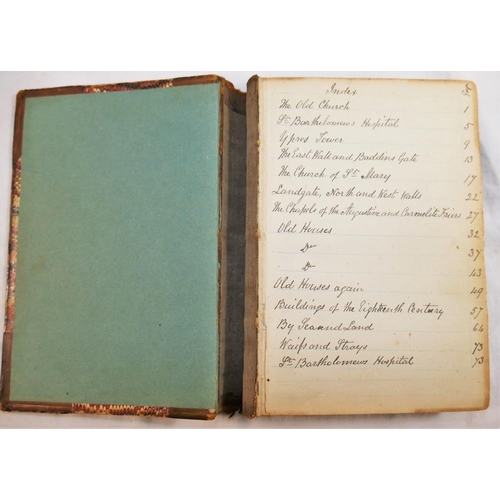 Index
The Old Church 1
St. Bartholomews Hospital 5
Ypres Tower 9
The East Walk and Baddins Gate 13
The Church of St. Mary 17
Landgate, North and West Walls 22
The Chapels of the Augustine and Carmelite Friars 27
Old Houses 32
Do 37
Do 43
Old Houses again 49
Buildings of the Eighteenth Century 57
By Sea and Land 64
Waifs and Strays 73
St. Bartholomews Hospital 73